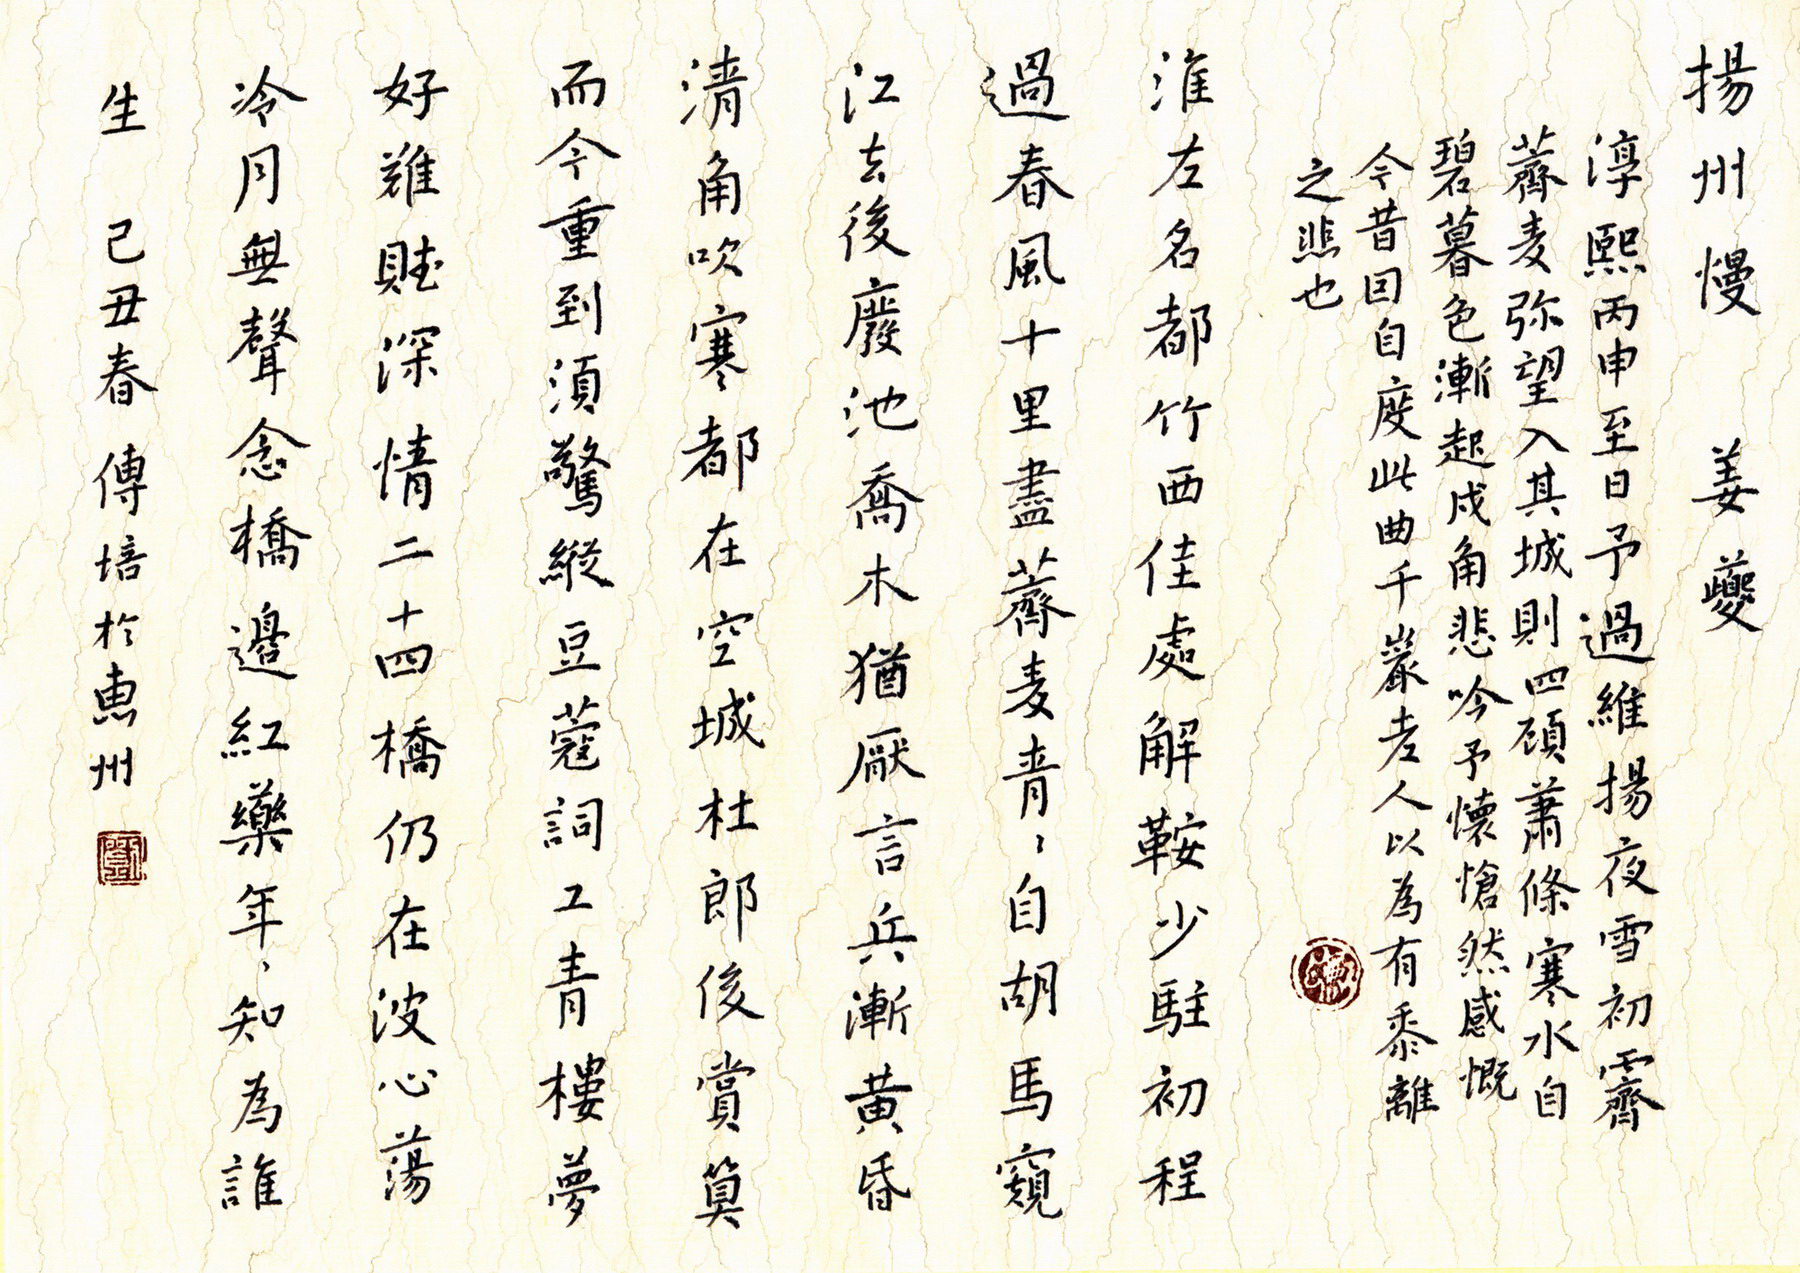 揚州慢 姜夔
淳熙丙申至日予過維揚夜雪初霽
薺麦弥望入其城則四顧蕭條寒水自
碧暮色漸起戍角悲吟予懷愴然感慨
今昔因自度此曲千巖老人以為有黍離
之悲也
淮左名都竹西佳處解鞍少駐初程
過春風十里盡薺麦青〻自胡馬窺
江去後廢池喬木猶厭言兵漸黄昏
清角吹寒都在空城杜郎俊賞算
而今重到須驚縱豆蔻詞工青樓夢
好難賦深情二十四橋仍在波心蕩
冷月無聲念橋邊紅藥年〻知為誰
生 己丑春傅培於惠州